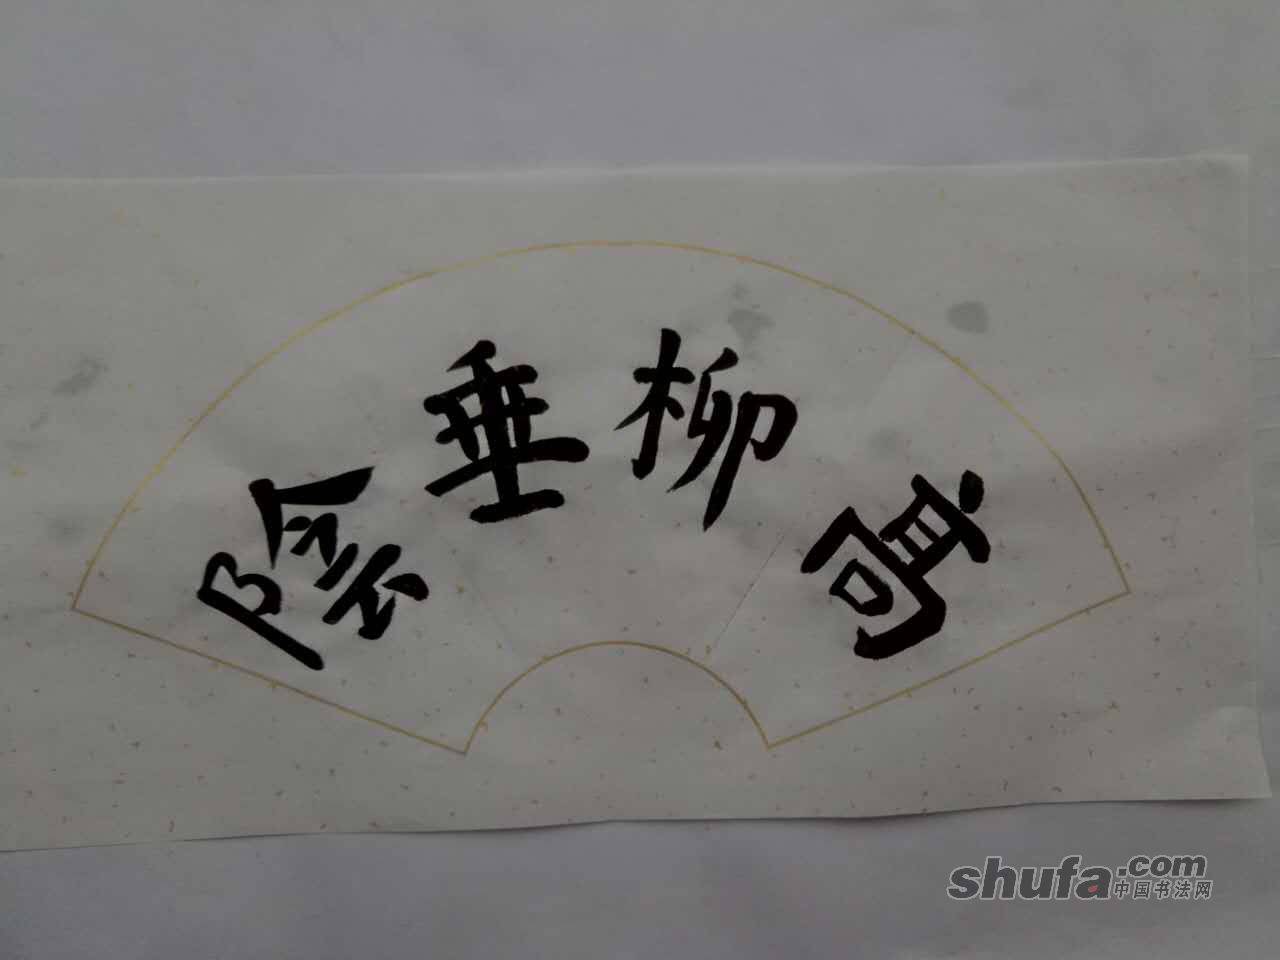 高柳垂陰
shufa.com
中国书法网